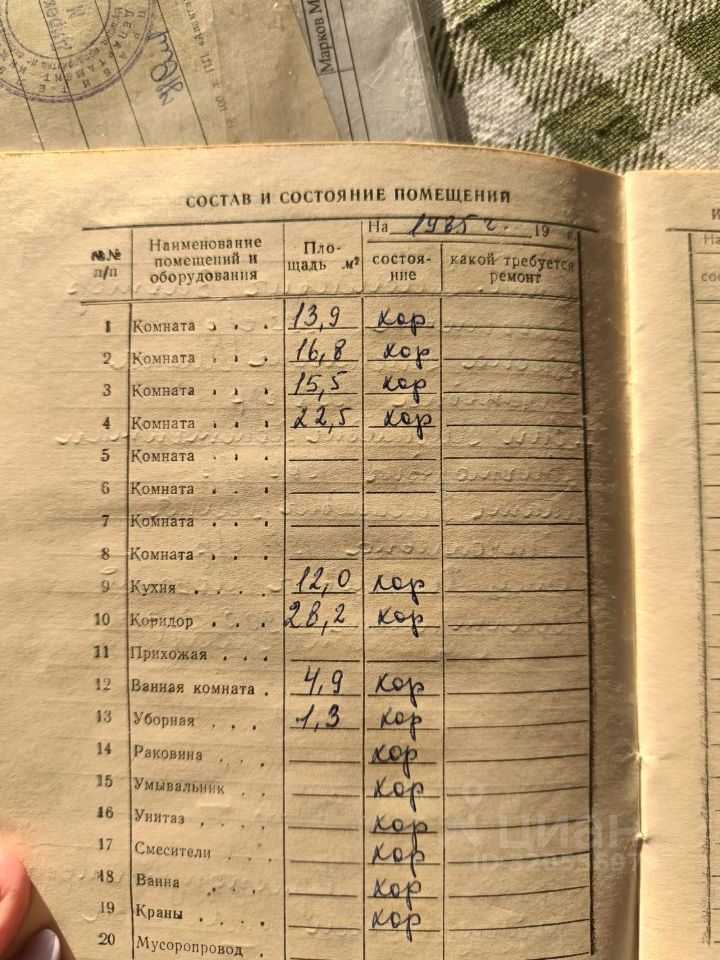 Марков М
СОСТАВ И СОСТОЯНИЕ ПОМЕЩЕНИЙ
№№ п/п
Наименование помещений и оборудования
Пло-
щадь м²
На 1985 г. 19
состоя-
ние
какой требуется
ремонт
1 Комната . . . 13,9 хор
2 Комната . . . 16,8 хор
3 Комната . . . 15,5 хор
4 Комната . . . 22,5 хор
5 Комната . . .
6 Комната . . .
7 Комната . . .
8 Комната . . .
9 Кухня . . . . 12,0 хор
10 Коридор . . . 28,2 хор
11 Прихожая . . .
12 Ванная комната . 4,9 хор
13 Уборная . . . 1,3 хор
14 Раковина . . . хор
15 Умывальник . . хор
16 Унитаз . . . . хор
17 Смесители . . . хор
18 Ванна . . . хор
19 Краны . . . . хор
20 Мусоропровод .
циан